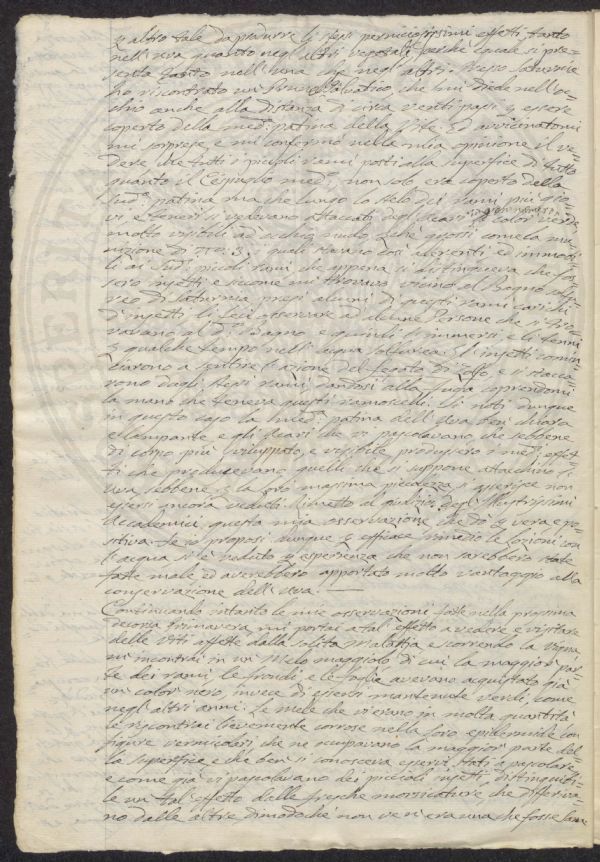 altro tale da produrre li stessi perniciosissimi effetti tanto
nell'uva quanto negl'altri vegetali, perché
tanto nell'uva che negl'altri. Presso Saturnia
ho riscontrato un che mi diede nell'oc=
chio anche alla distanza di circa venti passi essere
coperto della med.ª patina della Vite. Ed avvicinatomi
mi sorprese, e mi confermò nella mia opinione il ve=
dere che tutti i piccoli rami posti alla superfice di tutto
quanto il Cespuglio med.º non solo era coperto della
sud.ª patina ma che lungo lo stelo dei rami più
e teneri si vedevano attaccati degl'Acari color verde
molto visibili ad occhio nudo, grossi come la mu=
nizione di n.º 3. quali stavano così aderenti ed immobi=
li ai sud.i piccoli rami che appena si distingueva che fos=
sero insetti, e siccome mi trovavo vicino al Bagno sulf=
ureo di Saturnia presi alcuni di questi rami carichi
d'insetti li feci osservare ad alcune Persone che si tro=
vavano al d.º Bagno e quindi gl'immersi, e li tenni
qualche tempo nell'acqua solfurea. Gl'insetti comin=
ciarono a sentire l'azione del fegato di Zolfo, e si stacca=
rono dagli stessi rami dandosi alla fuga coprendomi
la mano che teneva questi ramoscelli. Si noti dunque
in questo caso la med.ª patina dell'Uva ben chiara
e lampante, e gli Acari che vi pascolavano, che sebbene
di corpo più sviluppato, e visibile produssero i med.i effet=
ti che producevano quelli che si suppone attacchino l'
uva sebbene la loro massima piccolezza non
essersi ancora veduti. Rimetto al giudizio degl'Illustrissimi
Accademici questa mia osservazione che do vera e po=
sitiva. Se io proposi dunque efficace rimedio le lozioni con
l'acqua si è veduto esperienza che non sarebbero state
fatte male, ed averebbero apportato molto vantaggio alla
conservazione dell'Uva. —
Continuando intanto le mie osservazioni fatte nella prossima
decorsa Primavera, mi portai a tal'effetto a vedere, e visitare
delle Viti affette dalla solita Malattia, e scorrendo la Vigna
m'incontrai in un Melo maggiolo di cui la maggior par=
te dei rami, le frondi, e le foglie avevano acquistato già
un color nero, invece di essersi mantenute verdi, come
negl'altri anni. Le mele che vi erano in molta quantità
le riscontrai lievemente corrose nella loro epidermide con
figure vermicolari, che ne occupavano la maggior parte del=
la superfice, e che ben si conosceva essersi stati a pascolare,
e come già vi pascolavano dei piccioli insetti, distinguibi=
le un tal'effetto dalle fresche morsicature, che differiva=
no dalle altre dimodoché non ve n'era una che fosse sana